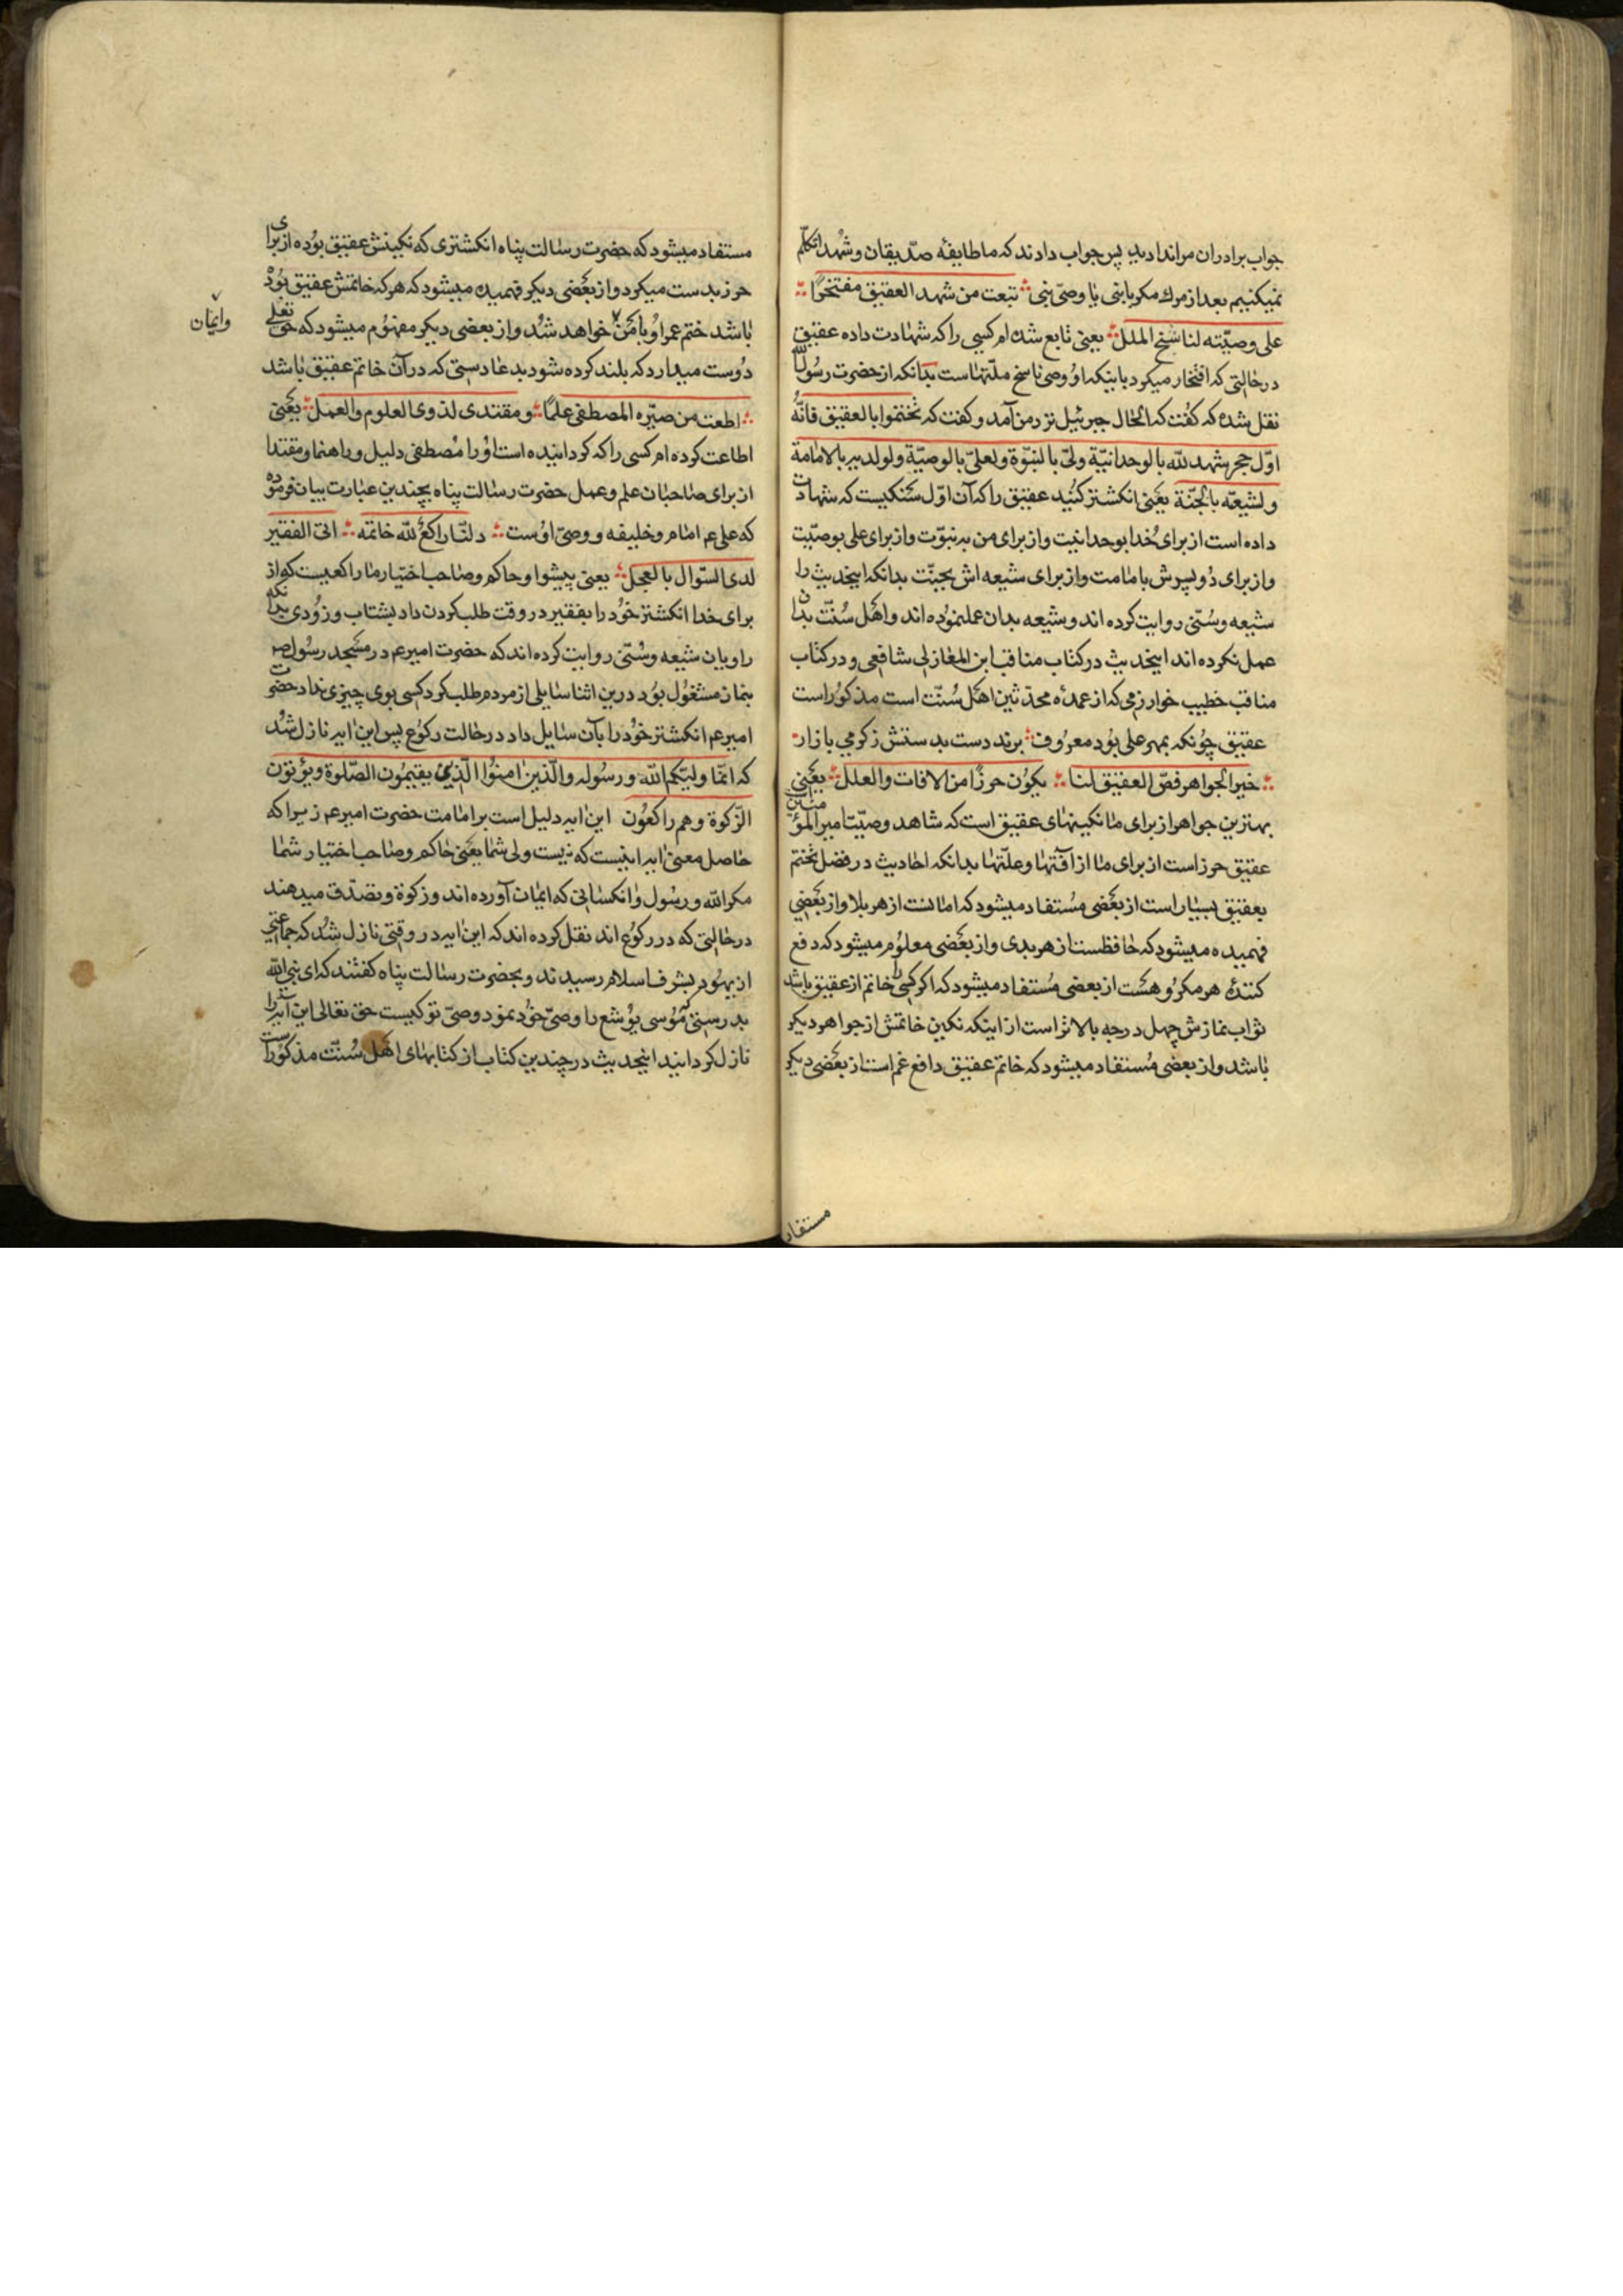 جواب برادران مرا ندادید پس جواب دادند که ما طایفهٔ صدّیقان و شُهدا تکلّم
نمیکنیم بعد از مرك مکر با نبی یا وصیّ نبی تبعت من شهد العقیق مفتخرًا
علی وصیّته لناسخ الملل یعنی تابع شده ام کسی را که شهادت داده عقیق
درحالتی که افتخار میکرد باینکه او وصی ناسخ ملّتهاست بدانکه از حضرت رسُول
نقل شده که کفت که الحال جبرئیل نزد من آمد و کفت که تختموا بالعقیق فانّه
اوّل حجر شهد للّه بالوحدانیّة ولی بالنبوّة ولعلیّ بالوصیّة ولولدیه بالامامة
ولشیعته بالجنّة یعنی انکشتر کنید عقیق را که آن اوّل سنکیست که شهادت
داده است از برای خُدا بوحدانیت و از برای من به نبوّت و از برای علی بوصیّت
و از برای دُو پسرش بامامت و از برای شیعه اش بجنّت بدانکه اینحدیث را
شیعه و سُنّی روایت کرده اند و شیعه بدان عمل نموده اند و اهل سُنّت بدان
عمل نکرده اند اینحدیث در کتاب مناقب ابن المغازلی شافعی و در کتاب
مناقب خطیب خوارزمی که از عمدهٔ محدّثین اهل سُنّت است مذکور است
عقیق چونکه بمهر علی بود معروف برند دست بدستش ز کرمی بازار
خیر الجواهر فصّ العقیق لنا یکون حرزًا من الافات والعلل یعنی
بهترین جواهر از برای ما نکینهای عقیق است که شاهد وصیّت امیر المؤمنین
عقیق حرز است از برای ما از افتها و علّتها بدانکه احادیث در فضل تختم
بعقیق بسیار است از بعضی مُستفاد میشود که امانست از هر بلا و از بعضی
فهمیده میشود که حافظست از هر بدی و از بعضی معلوم میشود که دفع
کنندهٔ هر مکرُوهست از بعضی مُستفاد میشود که اکر کسی را خاتم از عقیق باشد
ثواب نمازش چهل درجه بالاتر است از اینکه نکین خاتمش از جواهر دیکر
باشد و از بعضی مُستفاد میشود که خاتم عقیق دافع غم است از بعضی دیکر
مستفاد
مستفاد میشود که حضرت رسالت پناه انکشتری که نکینش عقیق بوده از برای
حرز بدست میکرد و از بعضی دیکر فهمیده میشود که هر که خاتمش عقیق بوده
باشد ختم عمر او با من خواهد شد و از بعضی دیکر مفهوم میشود که حق تعلی
وایمان
دُوست میدارد که بلند کرده شود بدعا دستی که در آن خاتم عقیق باشد
اطعت من صیّره المصطفی علمًا ومقتدی لذوی العلوم والعمل یعنی
اطاعت کرده ام کسی را که کردانیده است اُو را مُصطفی دلیل و راهنما و مقتدا
از برای صاحبان علم و عمل حضرت رسالت پناه بچندین عبارت بیان فرموده
که علی عم امام و خلیفه و وصیّ اوست لنا راکع للّه خاتمه اتی الفقیر
لدی السّوال بالعجل یعنی پیشوا و حاکم و صاحب اختیار ما راکعیست که از
برای خدا انکشتر خود را بفقیر در وقت طلب کردن داد بشتاب و زُودی بدانکه
راویان شیعه و سُنّی روایت کرده اند که حضرت امیر عم در مسجد رسُول ص
بنماز مشغُول بوُد درین اثنا سایلی از مردم طلب کرد کسی بوی چیزی نداد حضرت
امیر عم انکشتر خود را بآن سایل داد در حالت رکوُع پس این ایه نازل شد
که انّما ولیّکم اللّه ورسُوله والّذین امنوا الّذین یقیمُون الصّلوة ویؤتون
الزّکوة وهم راکعُون این ایه دلیل است بر امامت حضرت امیر عم زیرا که
حاصل معنی ایه اینست که نیست ولی شما یعنی حاکم و صاحب اختیار شما
مکر اللّه و رسُول و انکسانی که ایمان آورده اند و زکوة و تصدّق میدهند
درحالتی که در رکوُع اند نقل کرده اند که این ایه در وقتی نازل شد که جماعتی
از یهُود بشرف اسلام رسیدند و بحضرت رسالت پناه کفتند که ای نبی اللّه
بدرستی که موُسی یُوشع را وصیّ خود نمود وصیّ تو کیست حق تعالی این آیه را
نازل کردانید اینحدیث در چندین کتاب از کتابهای اهل سُنّت مذکور است